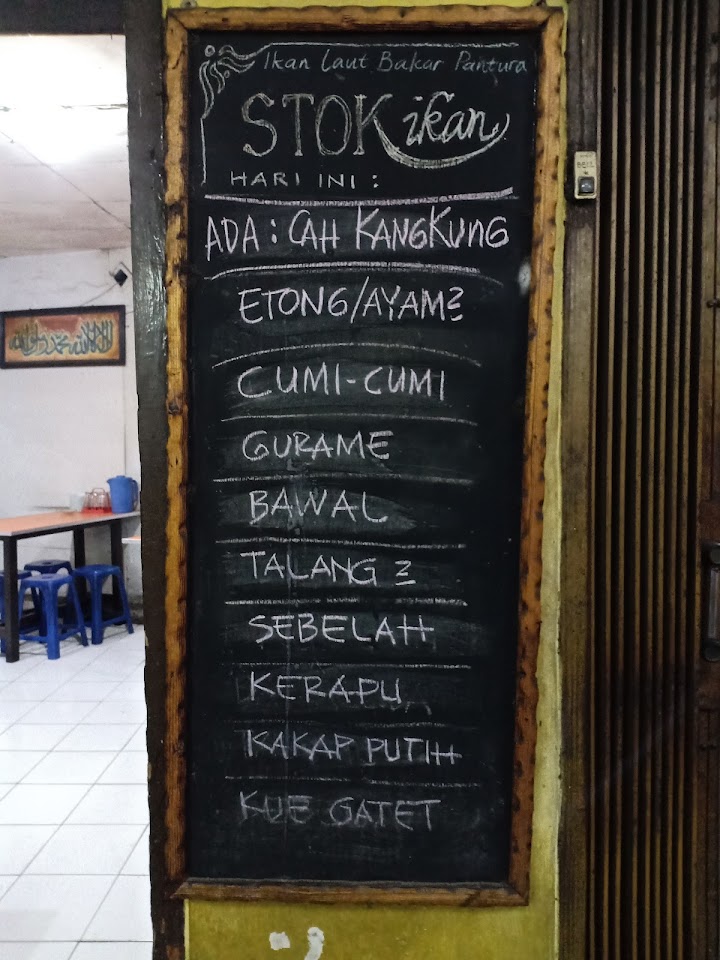 Ikan Laut Bakar Pantura
STOK ikan
HARI INI :
ADA : CAH KANGKUNG
ETONG/AYAM2
CUMI-CUMI
GURAME
BAWAL
TALANG 2
SEBELAH
KERAPU
KAKAP PUTIH
KUE GATET